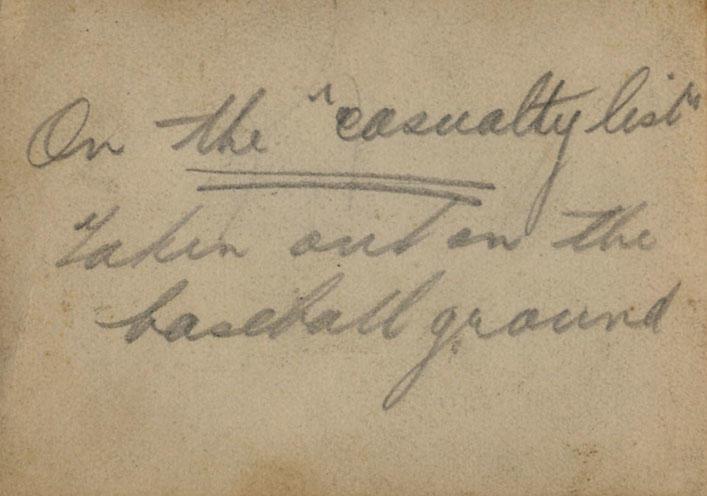 On the "casualty list"
Taken out on the
baseball ground